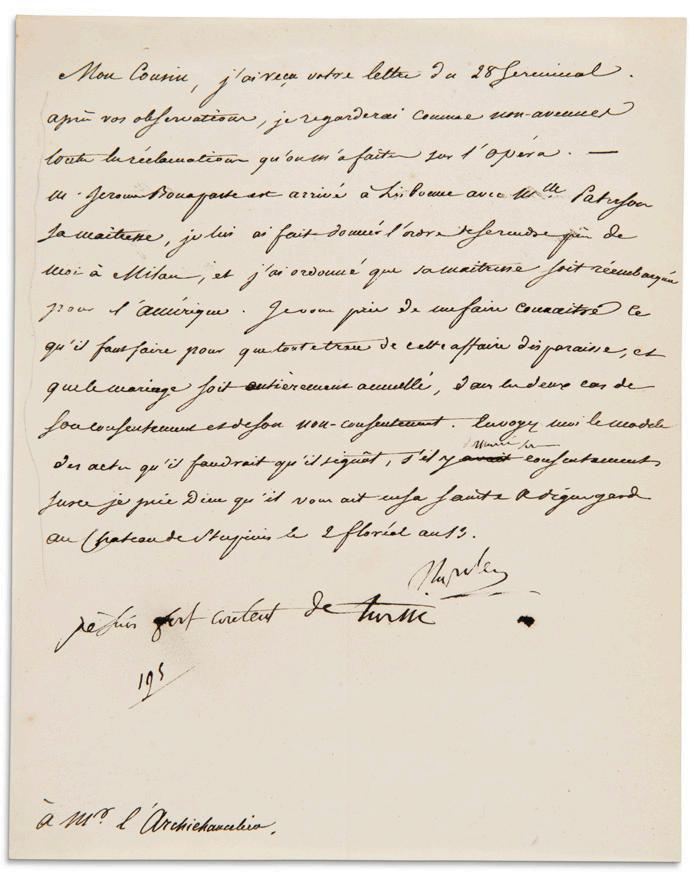 Mon Cousin, j'ai reçu votre lettre du 28 Germinal.
après vos observations, je regarderai comme non-avenues
toutes les réclamations qu'on m'a faites sur l'Opéra. —
M. Jerome Bonaparte est arrivé à Lisbonne avec Mlle Paterson
sa maitresse, je lui ai fait donner l'ordre de se rendre près de
moi à Milan, et j'ai ordonné que sa maitresse soit réembarquée
pour l'amérique. Je vous prie de me faire connaitre ce
qu'il faut faire pour que toute trace de cette affaire disparaisse, et
que le mariage soit entièrement annullé, dans les deux cas de
son consentement et de son non-consentement. Envoyez moi le modele
des actes qu'il faudrait qu'il signât, s'il y avait consentement
sur ce je prie Dieu qu'il vous ait en sa sainte & digne garde
au Chateau de Stupinis le 2 floréal an 13.
Napoleon
je suis fort content de turin
195
à Mr. l'Archichancelier.